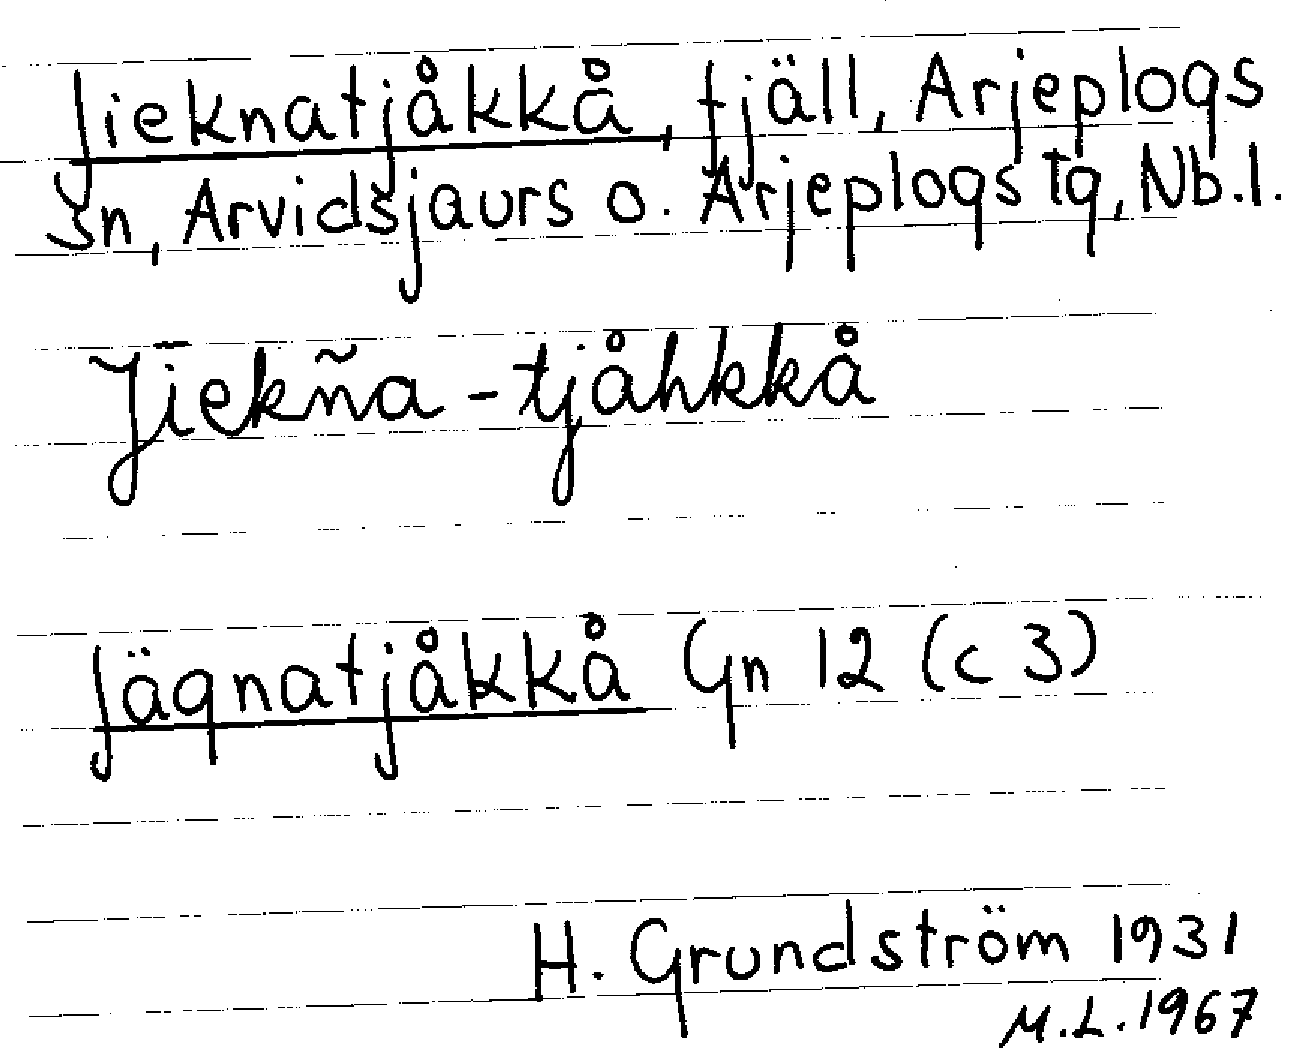 Jieknatjåkkå, fjäll, Arjeplogs
sn, Arvidsjaurs o. Arjeplogs tg, Nb.l.
Jiekña-tjåhkkå
Jägnatjåkkå Gn 12 (c 3)
H. Grundström 1931
M.L. 1967